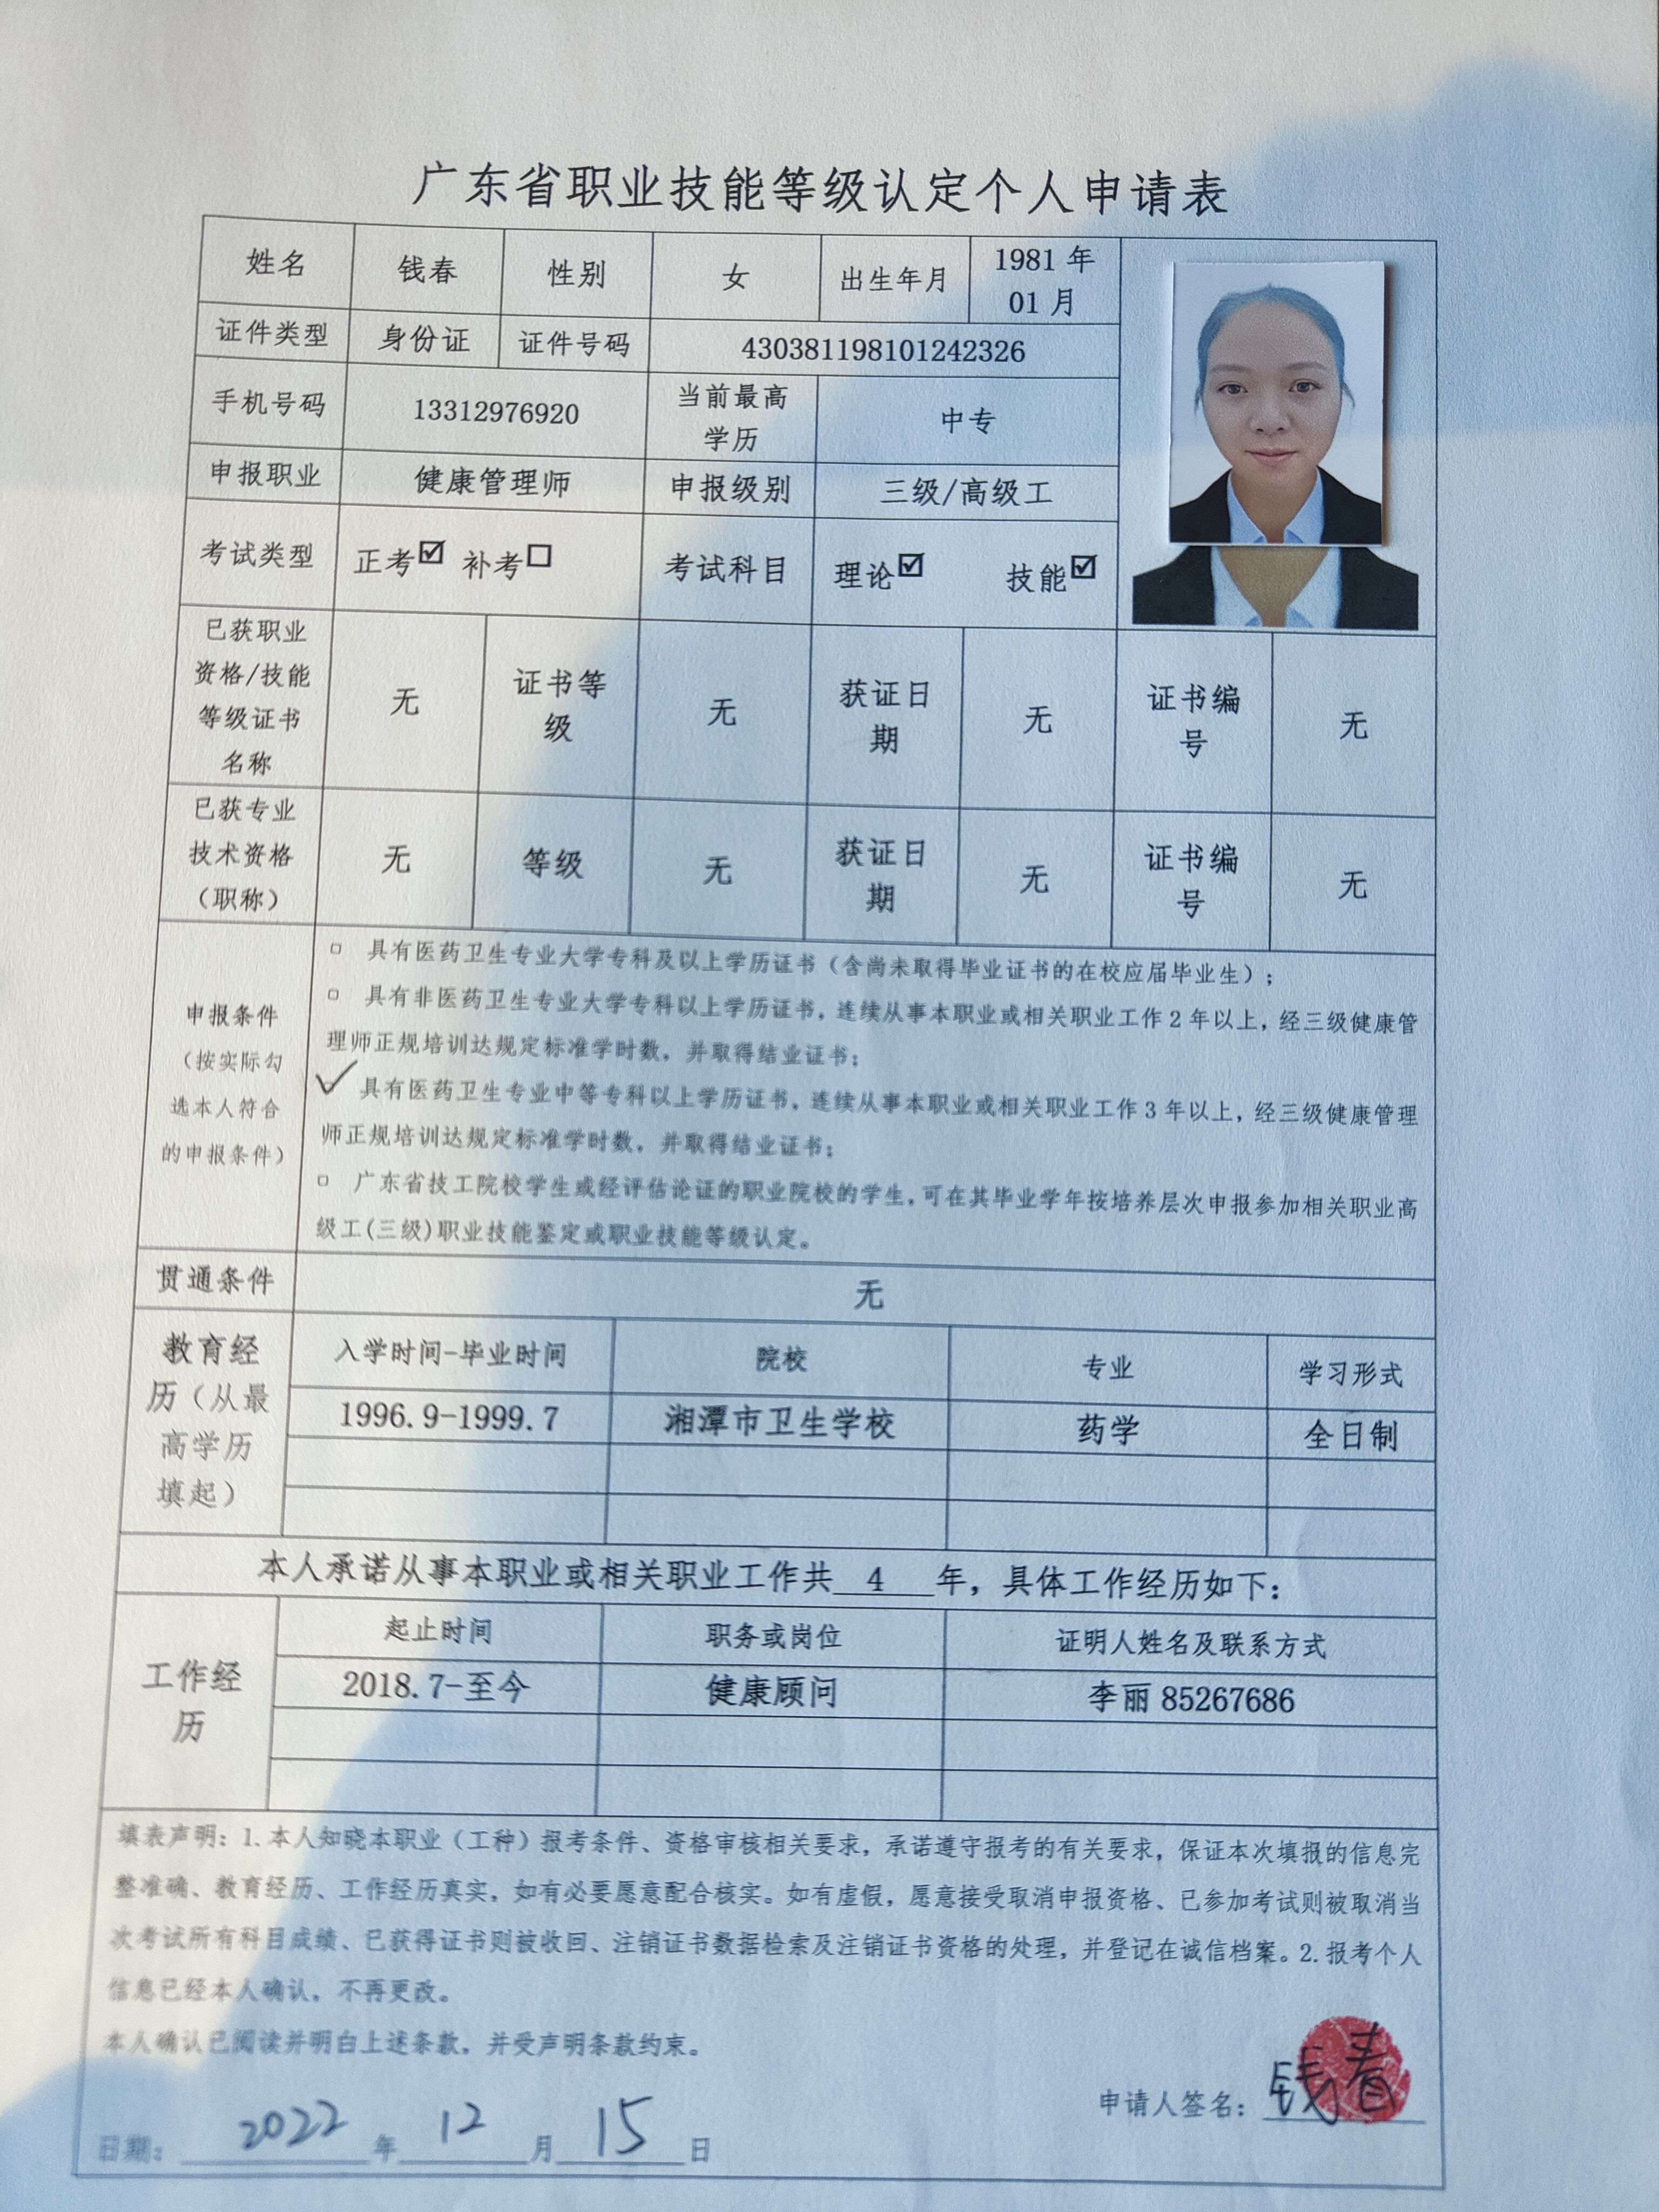 广东省职业技能等级认定个人申请表
姓名 钱春 性别 女 出生年月 1981年01月
证件类型 身份证 证件号码 430381198101242326
手机号码 13312976920 当前最高学历 中专
申报职业 健康管理师 申报级别 三级/高级工
考试类型 正考☑ 补考☐ 考试科目 理论☑ 技能☑
已获职业资格/技能等级证书名称 无 证书等级 无 获证日期 无 证书编号 无
已获专业技术资格（职称） 无 等级 无 获证日期 无 证书编号 无
申报条件
（按实际勾
选本人符合
的申报条件）
□ 具有医药卫生专业大学专科及以上学历证书（含尚未取得毕业证书的在校应届毕业生）；
□ 具有非医药卫生专业大学专科以上学历证书，连续从事本职业或相关职业工作2年以上，经三级健康管
理师正规培训达规定标准学时数，并取得结业证书；
✓ 具有医药卫生专业中等专科以上学历证书，连续从事本职业或相关职业工作3年以上，经三级健康管理
师正规培训达规定标准学时数，并取得结业证书；
□ 广东省技工院校学生或经评估论证的职业院校的学生，可在其毕业学年按培养层次申报参加相关职业高
级工(三级)职业技能鉴定或职业技能等级认定。
贯通条件 无
教育经
历（从最
高学历
填起）
入学时间-毕业时间 院校 专业 学习形式
1996.9-1999.7 湘潭市卫生学校 药学 全日制
本人承诺从事本职业或相关职业工作共 4 年，具体工作经历如下：
工作经
历
起止时间 职务或岗位 证明人姓名及联系方式
2018.7-至今 健康顾问 李丽 85267686
填表声明：1.本人知晓本职业（工种）报考条件、资格审核相关要求，承诺遵守报考的有关要求，保证本次填报的信息完
整准确、教育经历、工作经历真实，如有必要愿意配合核实。如有虚假，愿意接受取消申报资格、已参加考试则被取消当
次考试所有科目成绩、已获得证书则被收回、注销证书数据检索及注销证书资格的处理，并登记在诚信档案。2.报考个人
信息已经本人确认，不再更改。
本人确认已阅读并明白上述条款，并受声明条款约束。
申请人签名：钱春
日期： 2022 年 12 月 15 日